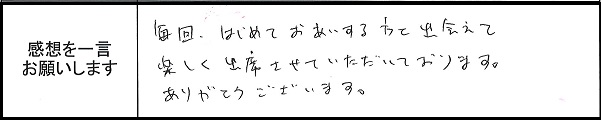 感想を一言
お願いします
毎回、はじめてお会いする方と出会えて
楽しく出席させていただいております。
ありがとうございます。